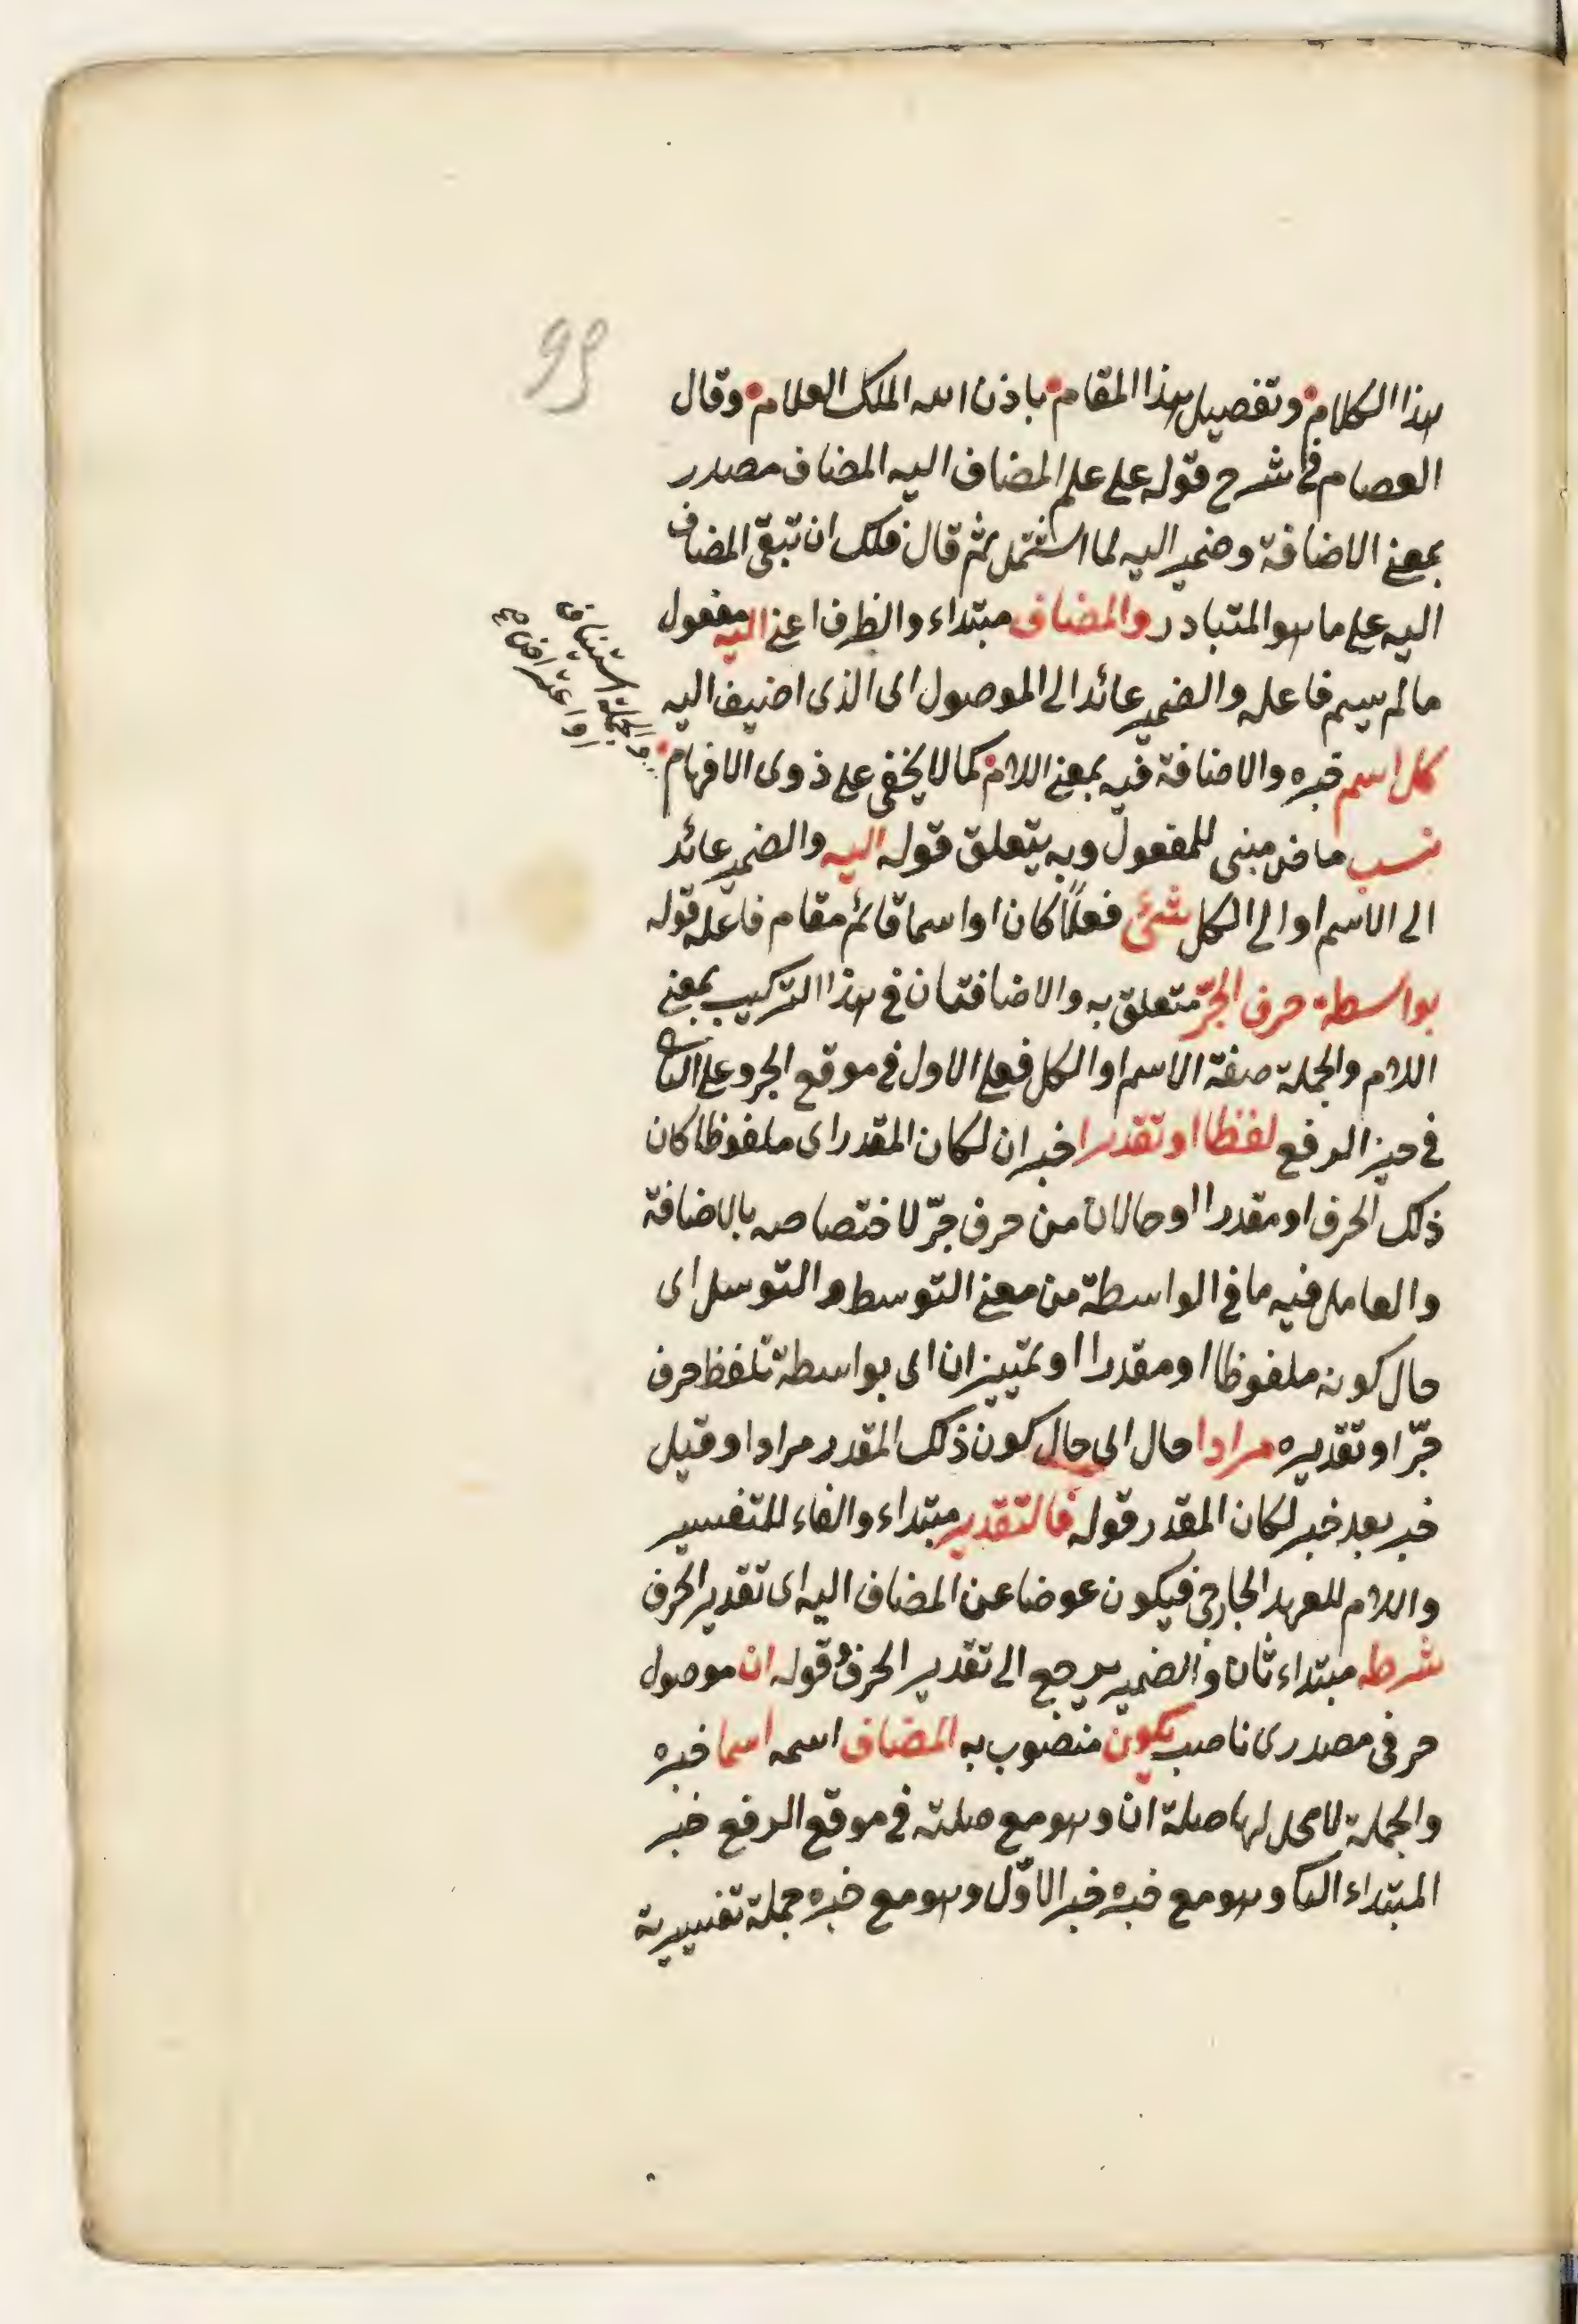 99
هذا الكلام وتفصيل هذا المقام باذن الله الملك العلام وقال
العصام في شرح قوله على علم المضاف اليه المضاف مصدر
بمعنى الاضافة وضمير اليه لما اشتمل ثم قال فلك ان تبقى المضاف
اليه على ما هو المتبادر والمضاف مبتداء والظرف اعنى اليه مفعول
ما لم يسم فاعله والضمير عائد الى الموصول اى الذى اضيف اليه
والجملة استيناف
او اعتراض
كل اسم خبره والاضافة فيه بمعنى اللام كما لا يخفى على ذوى الافهام
نسب ماض مبنى للمفعول وبه يتعلق قوله اليه والضمير عائد
الى الاسم او الى الكل شئ فعلا كان او اسما قائم مقام فاعله قوله
بواسطة حرف الجرّ متعلق به والاضافتان في هذا التركيب بمعنى
اللام والجملة صفة الاسم او الكل فعلى الاول في موقع الجر وعلى الثا
في حيز الرفع لفظا او تقديرا خبران لكان المقدر اى ملفوظا كان
ذلك الحرف او مقدرا او حالان من حرف جرّ لاختصاصه بالاضافة
والعامل فيه ما في الواسطة من معنى التوسط والتوسل اى
حال كونه ملفوظا او مقدرا او تمييزان اى بواسطة تلفظ حرف
جرّ او تقديره مرادا حال اى حال كون ذلك المقدر مرادا وقيل
خبر بعد خبر لكان المقدر قوله فالتقدير مبتداء والفاء للتفسير
واللام للعهد الخارجى فيكون عوضا عن المضاف اليه اى تقدير الحرف
شرطه مبتداء ثان والضمير يرجع الى تقدير الحرف وقوله ان موصول
حرفى مصدرى ناصب يكون منصوب به المضاف اسمه اسما خبره
والجملة لا محل لها صلة ان وهو مع صلته في موقع الرفع خبر
المبتداء الثا وهو مع خبره خبر الاوّل وهو مع خبره جملة تفسيرية